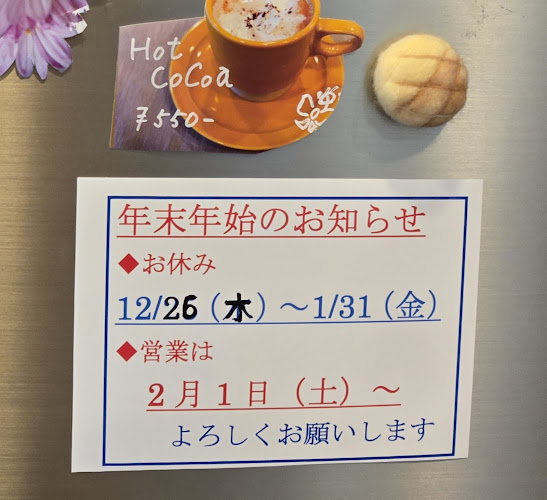 Hot
CoCoa
¥550-
年末年始のお知らせ
◆お休み
12/26（木）～1/31（金）
◆営業は
２月１日（土）～
よろしくお願いします